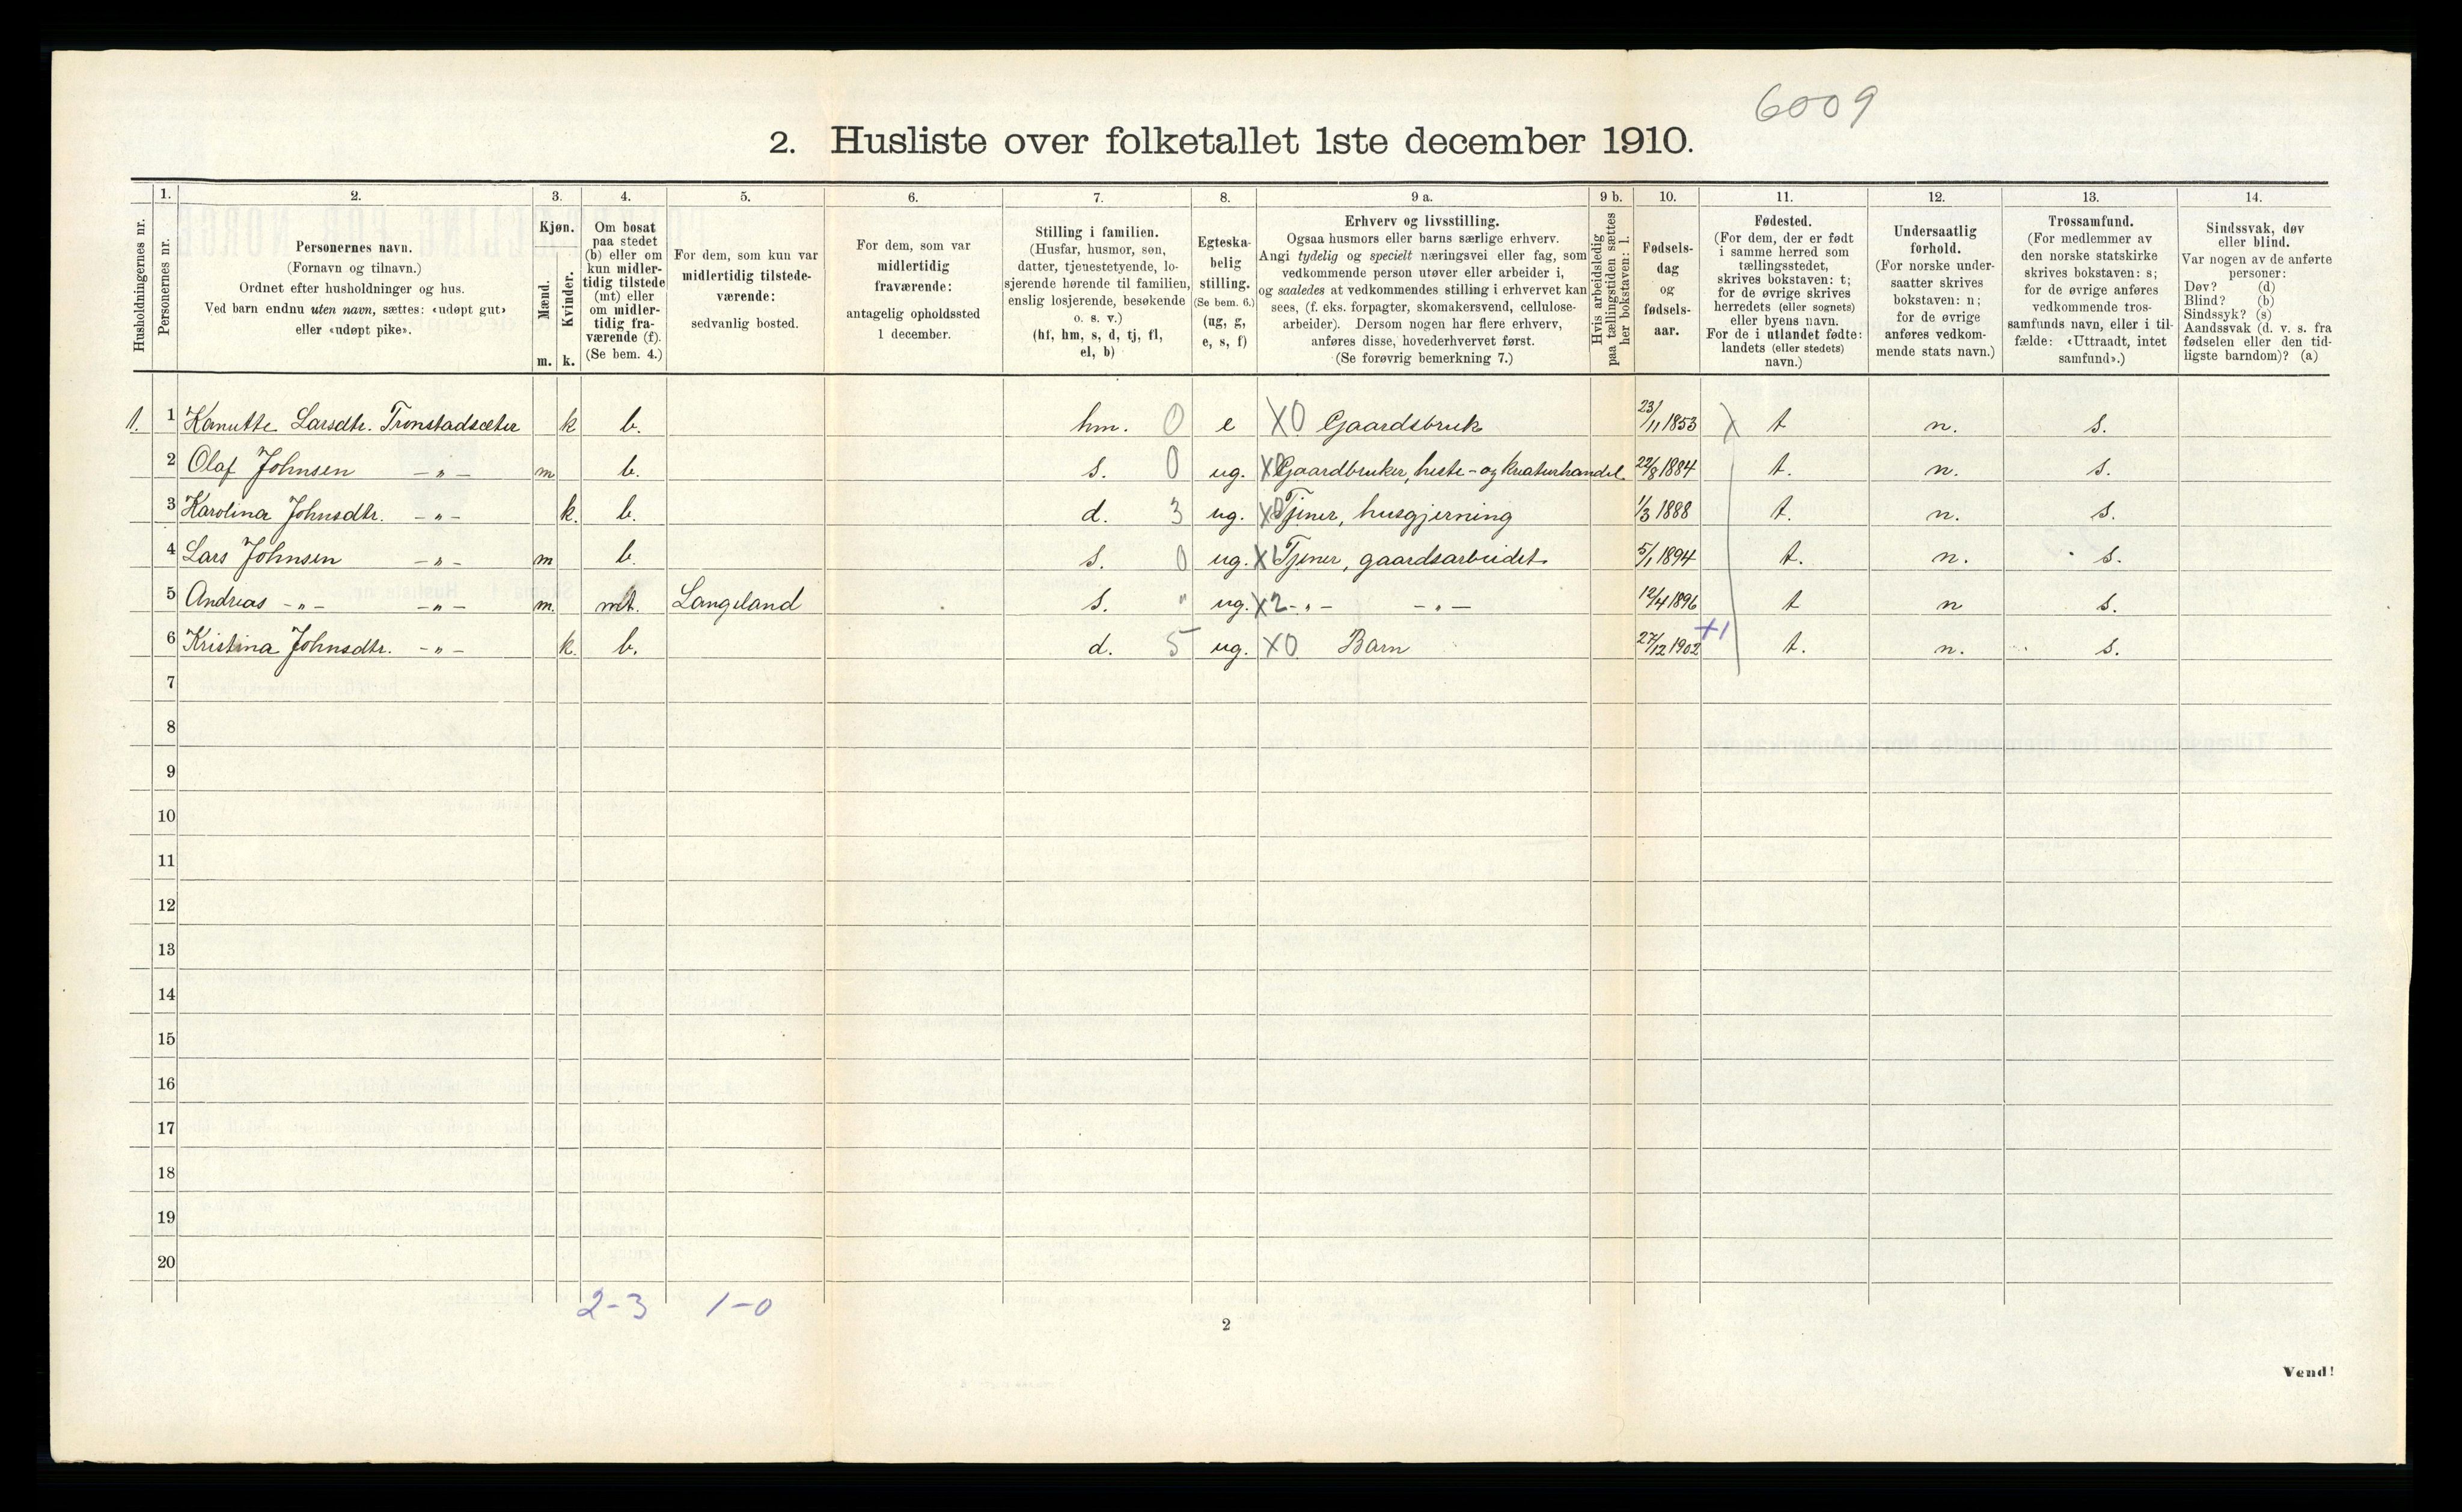 6009
2. Husliste over folketallet 1ste december 1910.
Husholdningernes nr.
1. Personernes nr.
2. Personernes navn.
(Fornavn og tilnavn.)
Ordnet efter husholdninger og hus.
Ved barn endnu uten navn, sættes: «udøpt gut»
eller «udøpt pike».
3. Kjøn.
Mænd. m.
Kvinder. k.
4. Om bosat
paa stedet
(b) eller om
kun midler-
tidig tilstede
(mt) eller
om midler-
tidig fra-
værende (f).
(Se bem. 4.)
5. For dem, som kun var
midlertidig tilstede-
værende:
sedvanlig bosted.
6. For dem, som var
midlertidig
fraværende:
antagelig opholdssted
1 december.
7. Stilling i familien.
(Husfar, husmor, søn,
datter, tjenestetyende, lo-
sjerende hørende til familien,
enslig losjerende, besøkende
o. s. v.)
(hf, hm, s, d, tj, fl,
el, b)
8. Egteska-
belig
stilling.
(Se bem. 6.)
(ug, g,
e, s, f)
9 a. Erhverv og livsstilling.
Ogsaa husmors eller barns særlige erhverv.
Angi tydelig og specielt næringsvei eller fag, som
vedkommende person utøver eller arbeider i,
og saaledes at vedkommendes stilling i erhvervet kan
sees, (f. eks. forpagter, skomakersvend, cellulose-
arbeider). Dersom nogen har flere erhverv,
anføres disse, hovederhvervet først.
(Se forøvrig bemerkning 7.)
9 b. Hvis arbeidsledig
paa tællingstiden sættes
her bokstaven: l.
10. Fødsels-
dag
og
fødsels-
aar.
11. Fødested.
(For dem, der er født
i samme herred som
tællingsstedet,
skrives bokstaven: t;
for de øvrige skrives
herredets (eller sognets)
eller byens navn.
For de i utlandet fødte:
landets (eller stedets)
navn.)
12. Undersaatlig
forhold.
(For norske under-
saatter skrives
bokstaven: n;
for de øvrige
anføres vedkom-
mende stats navn.)
13. Trossamfund.
(For medlemmer av
den norske statskirke
skrives bokstaven: s;
for de øvrige anføres
vedkommende tros-
samfunds navn, eller i til-
fælde: «Uttraadt, intet
samfund».)
14. Sindssvak, døv
eller blind.
Var nogen av de anførte
personer:
Døv? (d)
Blind? (b)
Sindssyk? (s)
Aandssvak (d. v. s. fra
fødselen eller den tid-
ligste barndom)? (a)
1. 1 Kanutte Larsdtr. Tronstadsæter k b. hm. 0 e X0 Gaardsbruk 23/11 1853 X t n. s.
2 Olaf Johnsen -"- m b. s. 0 ug. X0 Gaardbruker, heste- og kreaturhandel. 22/8 1884 t. n. s.
3 Karolina Johnsdtr. -"- k. b. d. 3 ug. Tjener, husgjerning 1/3 1888 t. n. s.
4 Lars Johnsen -"- m b. s. 0 ug. Tjener, gaardsarbeidet. 5/1 1894 t. n. s.
5 Andreas -"- -"- m. mt. Langeland s. " ug. X2 -"- -"- 12/4 1896 t n s.
6 Kristina Johnsdtr. -"- k. b. d. 5 ug. X0 Barn 27/12 1902 +1 t. n. s.
7
8
9
10
11
12
13
14
15
16
17
18
19
20
2-3 1-0
2
Vend!